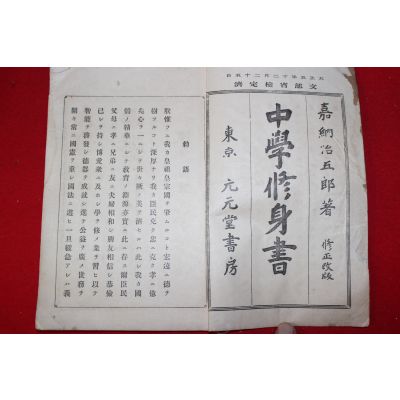 大正五年十二月二十五日
文部省檢定濟
嘉納治五郎著
修正改版
中學修身書
東京 元元堂書房
勅語
朕惟フニ我カ皇祖皇宗國ヲ肇ムルコト宏遠ニ德ヲ
樹ツルコト深厚ナリ我カ臣民克ク忠ニ克ク孝ニ億
兆心ヲ一ニシテ世々厥ノ美ヲ濟セルハ此レ我カ國
體ノ精華ニシテ教育ノ淵源亦實ニ此ニ存ス爾臣民
父母ニ孝ニ兄弟ニ友ニ夫婦相和シ朋友相信シ恭儉
己レヲ持シ博愛衆ニ及ホシ學ヲ修メ業ヲ習ヒ以テ
智能ヲ啓發シ德器ヲ成就シ進テ公益ヲ廣メ世務ヲ
開キ常ニ國憲ヲ重シ國法ニ遵ヒ一旦緩急アレハ義